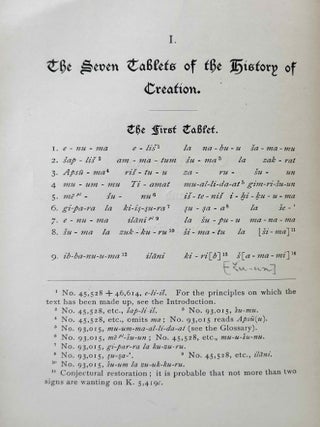 I.
The Seven Tablets of the History of
Creation.
The First Tablet.
1. e - nu - ma e - liš¹ la na - bu - u ša - ma - mu
2. šap - liš² am - ma - tum šu - ma³ la zak - rat
3. Apsū - ma⁴ riš - tu - u za - ru - šu - un
4. mu - um - mu Ti - amat mu - al - li - da - at⁵ gim - ri - šu - un
5. mē⁶ - šu - nu iš - te - niš i - ḫi - ḳu - u - ma
6. gi - pa - ra la ki - iṣ - ṣu - ra⁷ ṣu - ṣa - a⁸ la še - '
7. e - nu - ma ilāni⁹ la šu - pu - u ma - na - ma
8. šu - ma la zuk - ku - ru¹⁰ ši - ma - tu la [ši - ma]¹¹
9. ib - ba - nu - u - ma¹² ilāni ki - ri[b] š[a - ma - mi]
[šu-un]
¹ No. 45,528 + 46,614, e-li-il. For the principles on which the
text has been made up, see the Introduction.
² No. 45,528, etc., šap-li-il. ³ No. 93,015, šu-mu.
⁴ No. 45,528, etc., omits ma; No. 93,015 reads Apsū(u).
⁵ No. 93,015, mu-um-ma-al-li-da-at (see the Glossary).
⁶ No. 93,015, mē-šu-un; No. 45,528, etc., mu-u-šu-nu.
⁷ No. 93,015, gi-par-ra la ku-zu-ru.
⁸ No. 93,015, ṣu-ṣa-'. ⁹ No. 45,528, etc., ilāni.
¹⁰ No. 93,015, šu-um la zu-uk-ku-ru.
¹¹ Conjectural restoration; it is probable that not more than two
signs are wanting on K. 5,419c.